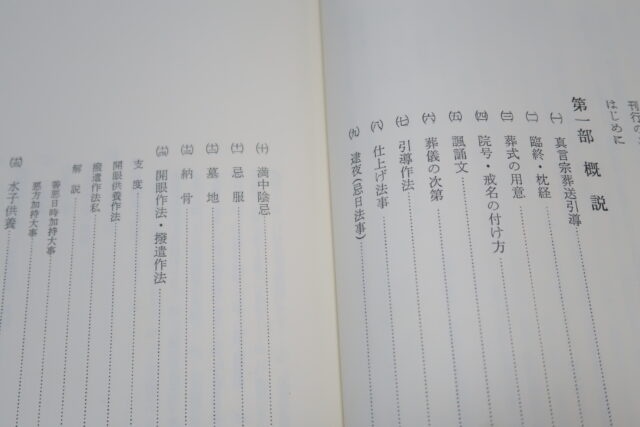 刊行の
はじめに
第一部 概説
㈠ 真言宗葬送引導
㈡ 臨終・枕経
㈢ 葬式の用意
㈣ 院号・戒名の付け方
㈤ 諷誦文
㈥ 葬儀の次第
㈦ 引導作法
㈧ 仕上げ法事
㈨ 逮夜(忌日法事)
㈩ 満中陰忌
(十一) 忌服
(十二) 墓地
(十三) 納骨
(十四) 開眼作法・撥遣作法
支度
開眼供養作法
撥遣作法私
解説
善悪日時加持大事
悪方加持大事
(十五) 水子供養